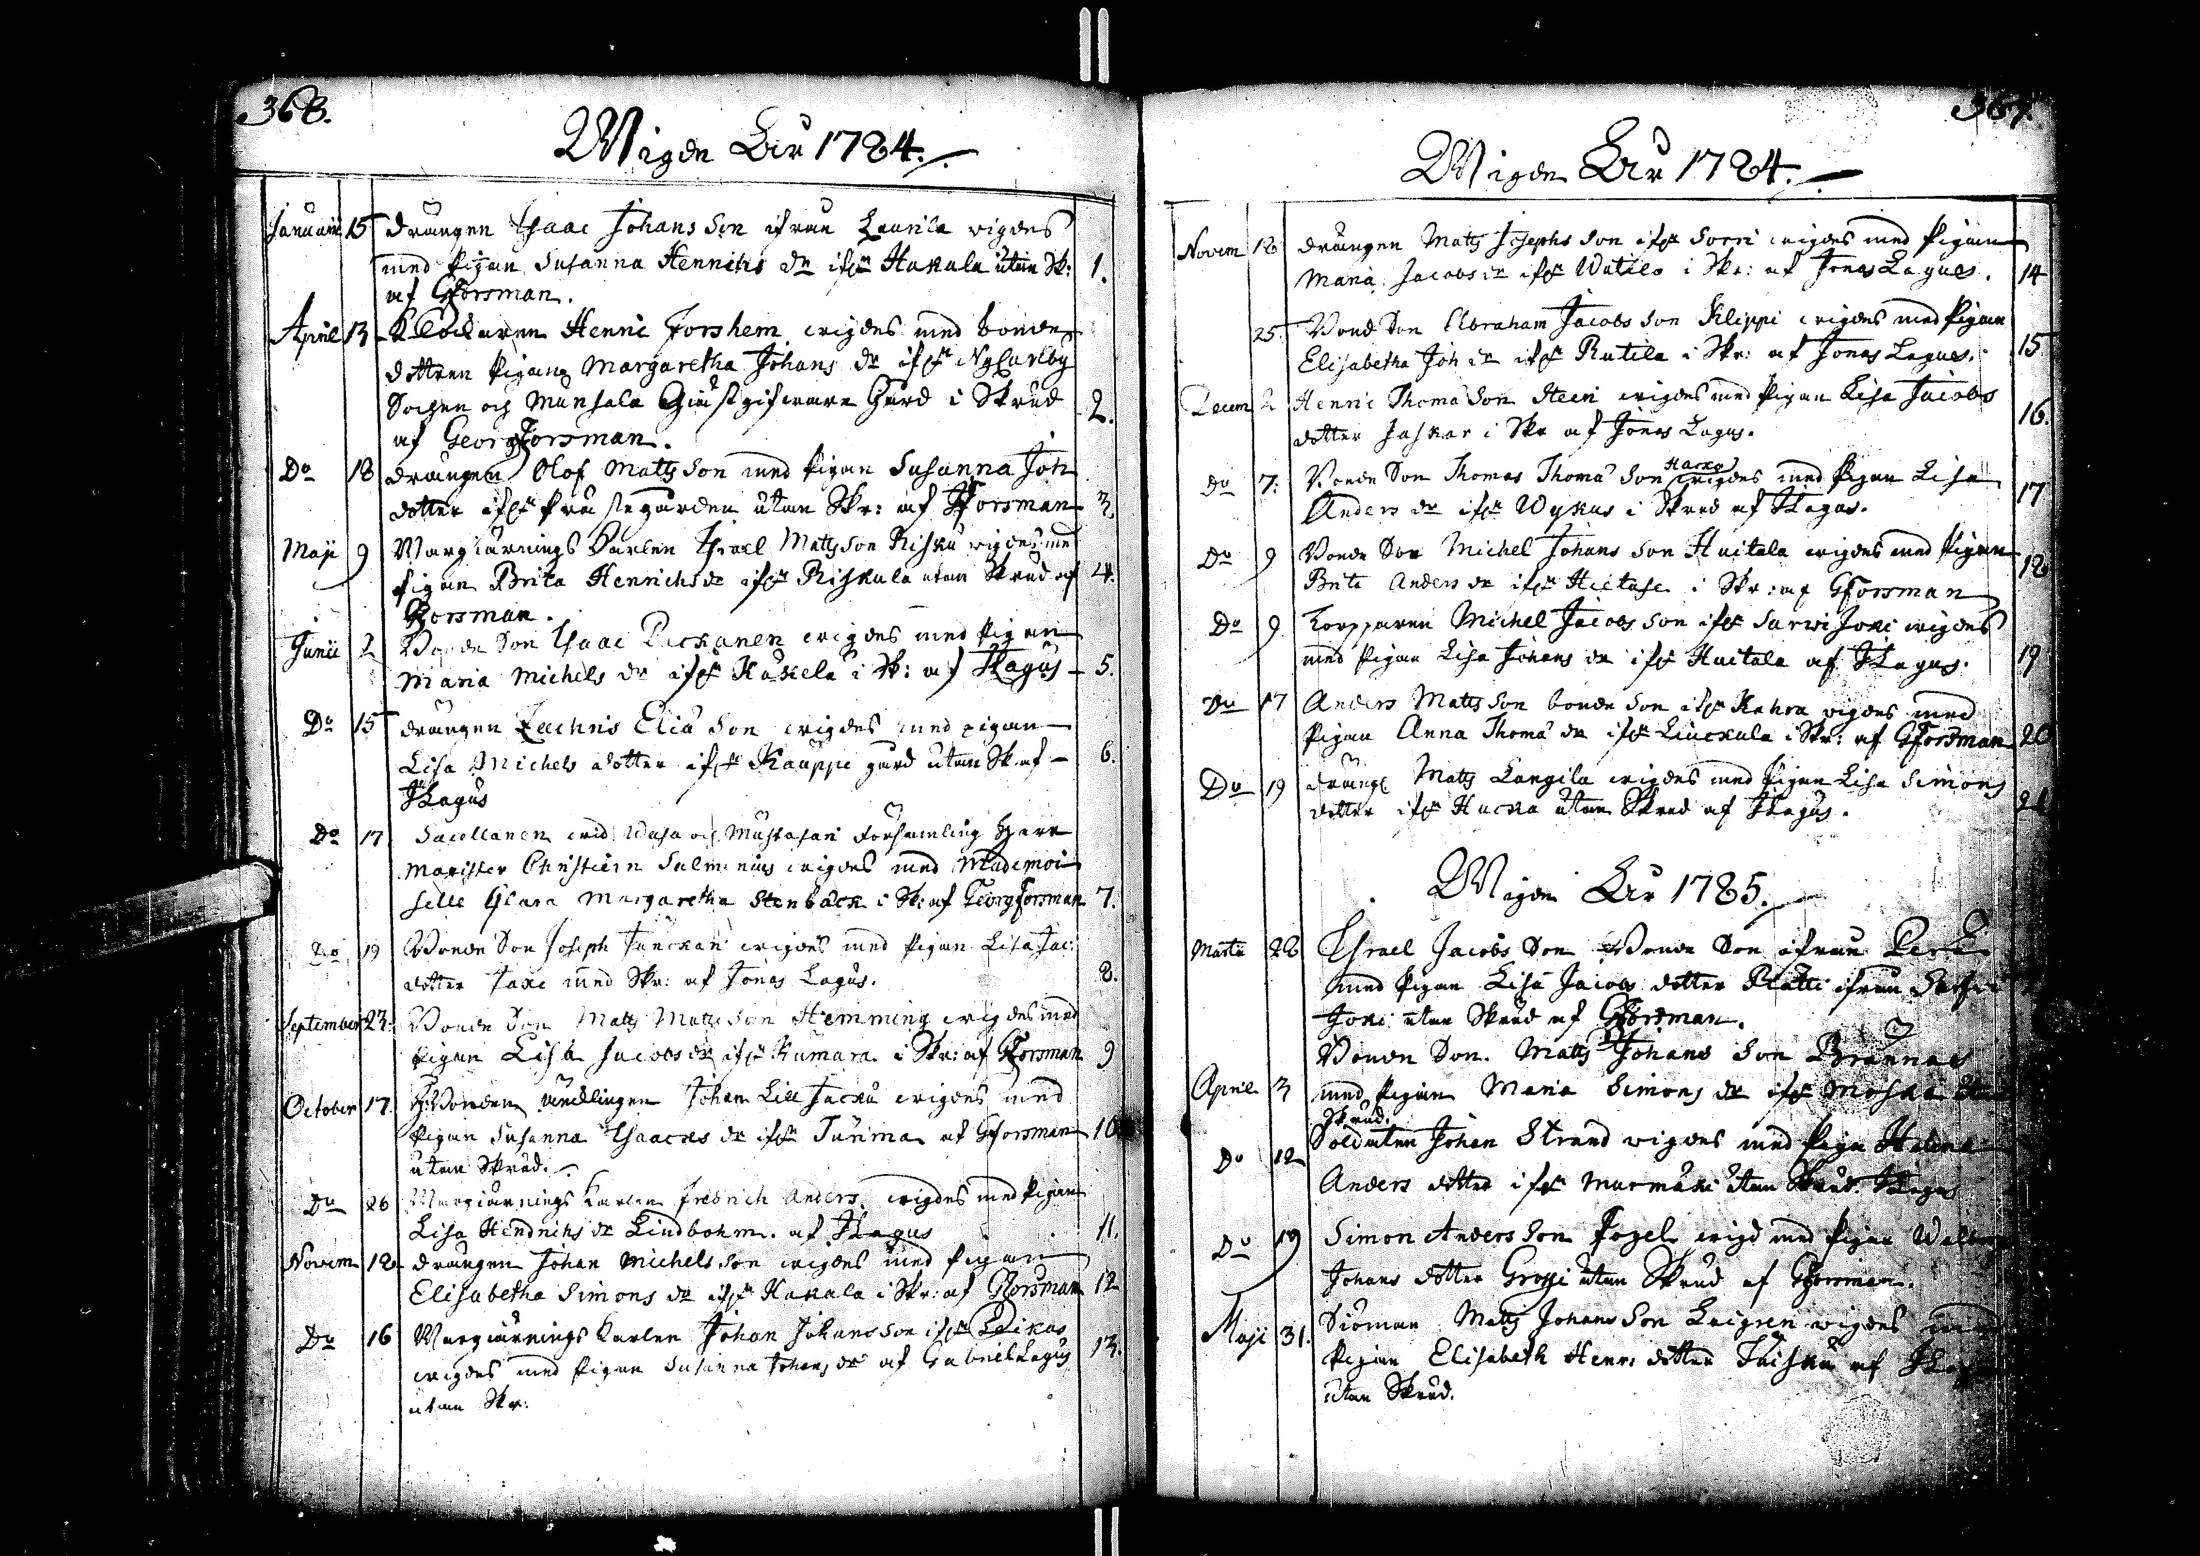 368.
Wigde Åhr 1784.
Januarii 15 drängen Isaac Johans Son ifrån Launila wigdes
med Pigan Susanna Henrichs dr ifrn Hakala utan Sk: 1.
af GForsman.
April 13 Klockaren Henric Forshem wigdes med bonde
dottren Pigan Margaretha Johans dr ifrn NyCarlby
Sochn och Munsala Giästgifware Gård i Skrud 2.
af Georg Forsman.
Do 18 drängen Olof Matts Son med Pigan Susanna Joh
dotter ifrn Prästegården utan Skr: af GForsman 3.
Maji 9 Wargiärnings Karlen Israel Matts Son Risku wigdes med
Pigan Brita Henrichs dr ifrn Riskula utan Skrud af 4.
GForsman.
Junii 2 Bonde Son Isaac Pickanen wigdes med Pigan
Maria Michels dr ifrn Kukela i Sk: af JLagus 5.
Do 15 drängen Zachris Elia Son wigdes med pigan
Lisa Michels dotter ifrn Kauppi gård utan Sk. af 6.
JLagus
Do 17 Sacellanen wid Wasa och Mustasari Församling Herr
Magister Christiern Salmenius wigdes med Mademoi
selle Clara Margaretha Stenbäck i Sk: af Georg Forsman 7.
Do 19 Bonde Son Joseph wigdes med Pigan Lisa Jac:
dotter med Skr: af Jonas Lagus. 8.
September 23. Bonde Son Matts Matts Son Hemming wigdes med
Pigan Lisa Jacobs dr ifrn Kamara i Skr: af GForsman 9
October 17. Bonden Johan Lill Jacku wigdes med
Pigan Susanna Isaacks dr ifrn af GForsman 10
utan Skrud.
Do 26 Wargiärnings Karlen Fredrich Anders wigdes med Pigan
Lisa Hendrichs dr Lindbohm. af JLagus 11.
Novem 12 drängen Johan Michels Son wigdes med Pigan
Elisabetha Simons dr ifrn Kakala i Skr: af GForsman 12
Do 16 Wargiärnings Karlen Johan Johans Son ifrn
wigdes med Pigan Susanna Johans dr af Gabriel Lagus 13.
utan Skr:
369.
Wigde Åhr 1784.
Novem 18 drängen Matts Josephs Son ifrn Sorri wigdes med Pigan
Maria Jacobs dr ifrn i Skr: af Jonas Lagus. 14
25. Bonde Son Abraham Jacobs Son Klippi wigdes med Pigan
Elisabetha Joh dr ifrn Rutila i Skr: af Jonas Lagus. 15.
Decem 2 Henric Thoma Son wigdes med Pigan Lisa Jacobs
dotter Jaskar i Skr af Jonas Lagus. 16.
Do 7. Bonde Son Thomas Thoma Son Harko wigdes med Pigan Lisa
Anders dr ifrn Wykas i Skrud af JLagus. 17
Do 9 Bonde Son Michel Johans Son Huitala wigdes med Pigan
Brita Anders dr ifrn i Skr: af GForsman 18
Do 9 Torpparen Michel Jacobs Son ifrn Sarwi Joki wigdes
med Pigan Lisa Johans dr ifrn Huitala af JLagus. 19
Do 17 Anders Matts Son bonde Son ifrn Kahra wigdes med
Pigan Anna Thoma dr ifrn Liuckula i Skr: af GForsman 20
Do 19 dräng Matts Langila wigdes med Pigan Lisa Simons
dotter ifrn Hucka utan Skrud af JLagus. 21
Wigde Åhr 1785.
Martii 28 Israel Jacobs Son Bonde Son ifrån
med Pigan Lisa Jacobs dotter ifrån
Joki utan Skrud af GForsman.
Bonde Son. Matts Johans Son Brännas
April 3 med Pigan Maria Simons dr ifrn utan
Skrud.
Do 12 Soldaten Johan Strand wigdes med Piga Helena
Anders dotter ifrn utan Skrud. JLagus
Do 19 Simon Anders Son Fogel wigd med Pigan
Johans dotter Groggi utan Skrud af GForsman.
Maji 31. Siöman Matts Johans Son wigdes med
Pigan Elisabeth Henr: dotter af JLagus
utan Skrud.